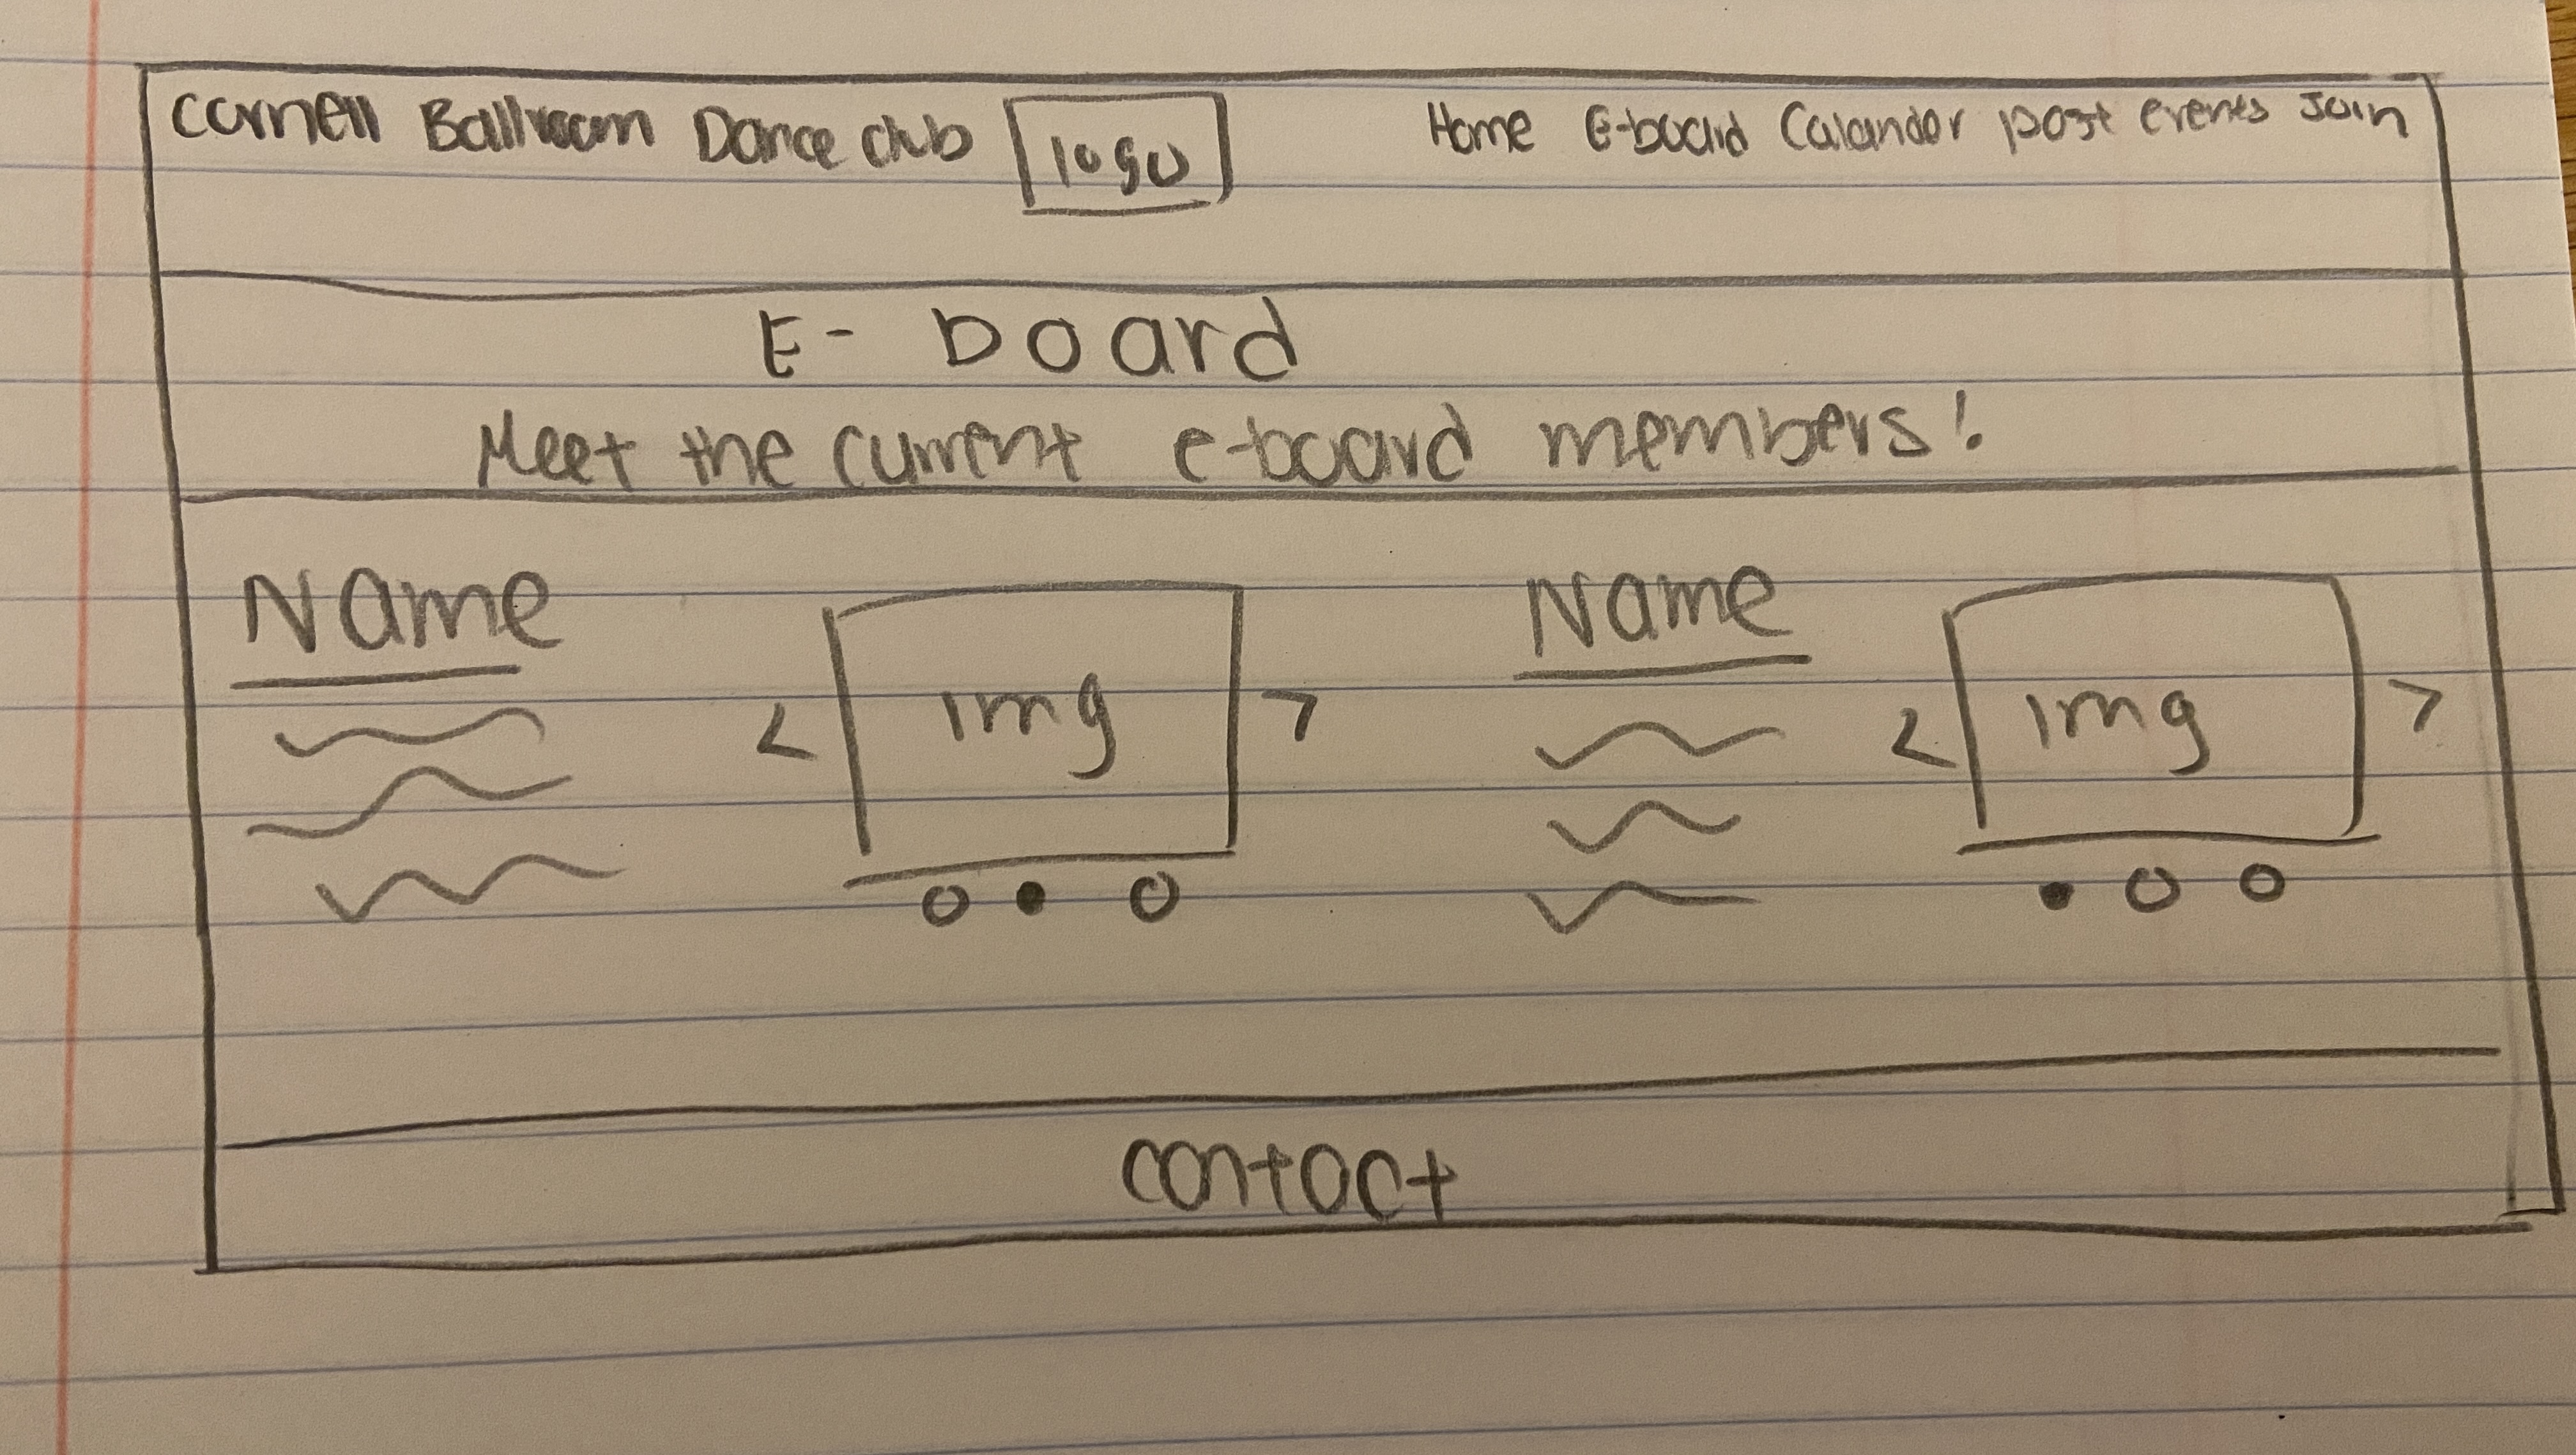 Cornell Ballroom Dance club logo Home E-board Calander past events Join
E-board
Meet the current e-board members!
Name < img > Name < img >
contact